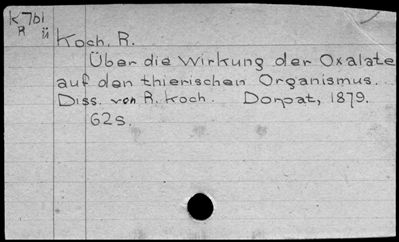 K761
R ü
Koch, R.
Über die Wirkung der Oxalate
auf den thierischen Organismus.
Diss. von R. Koch. Dorpat, 1879.
62s.